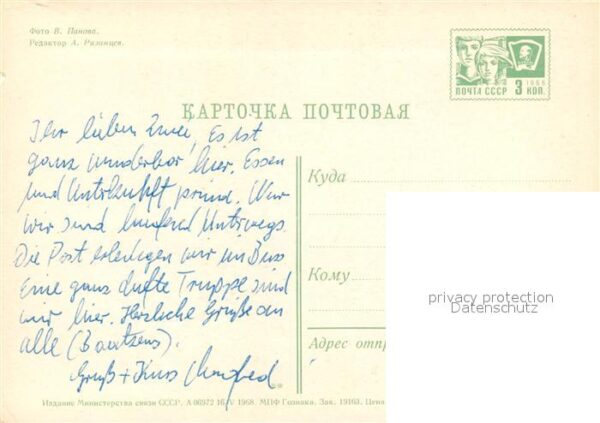 Фото В. Панова.
Редактор А. Рязанцев.
ПОЧТА СССР 3 КОП.
1966
КАРТОЧКА ПОЧТОВАЯ
Ihr lieben Zwei, Es ist
ganz wunderbar hier. Essen
und Unterkunft prima. Nur
wir sind laufend Unterwegs.
Die Post erledigen wir im Bus
Eine ganz dufte Truppe sind
wir hier. Herzliche Grüße an
alle (Bautzens).
Gruß + Kuss Manfred
Куда
Кому
Адрес отпр
privacy protection
Datenschutz
Издание Министерства связи СССР. А 06972 16/V 1968. МПФ Гознака. Зак. 19163. Цена